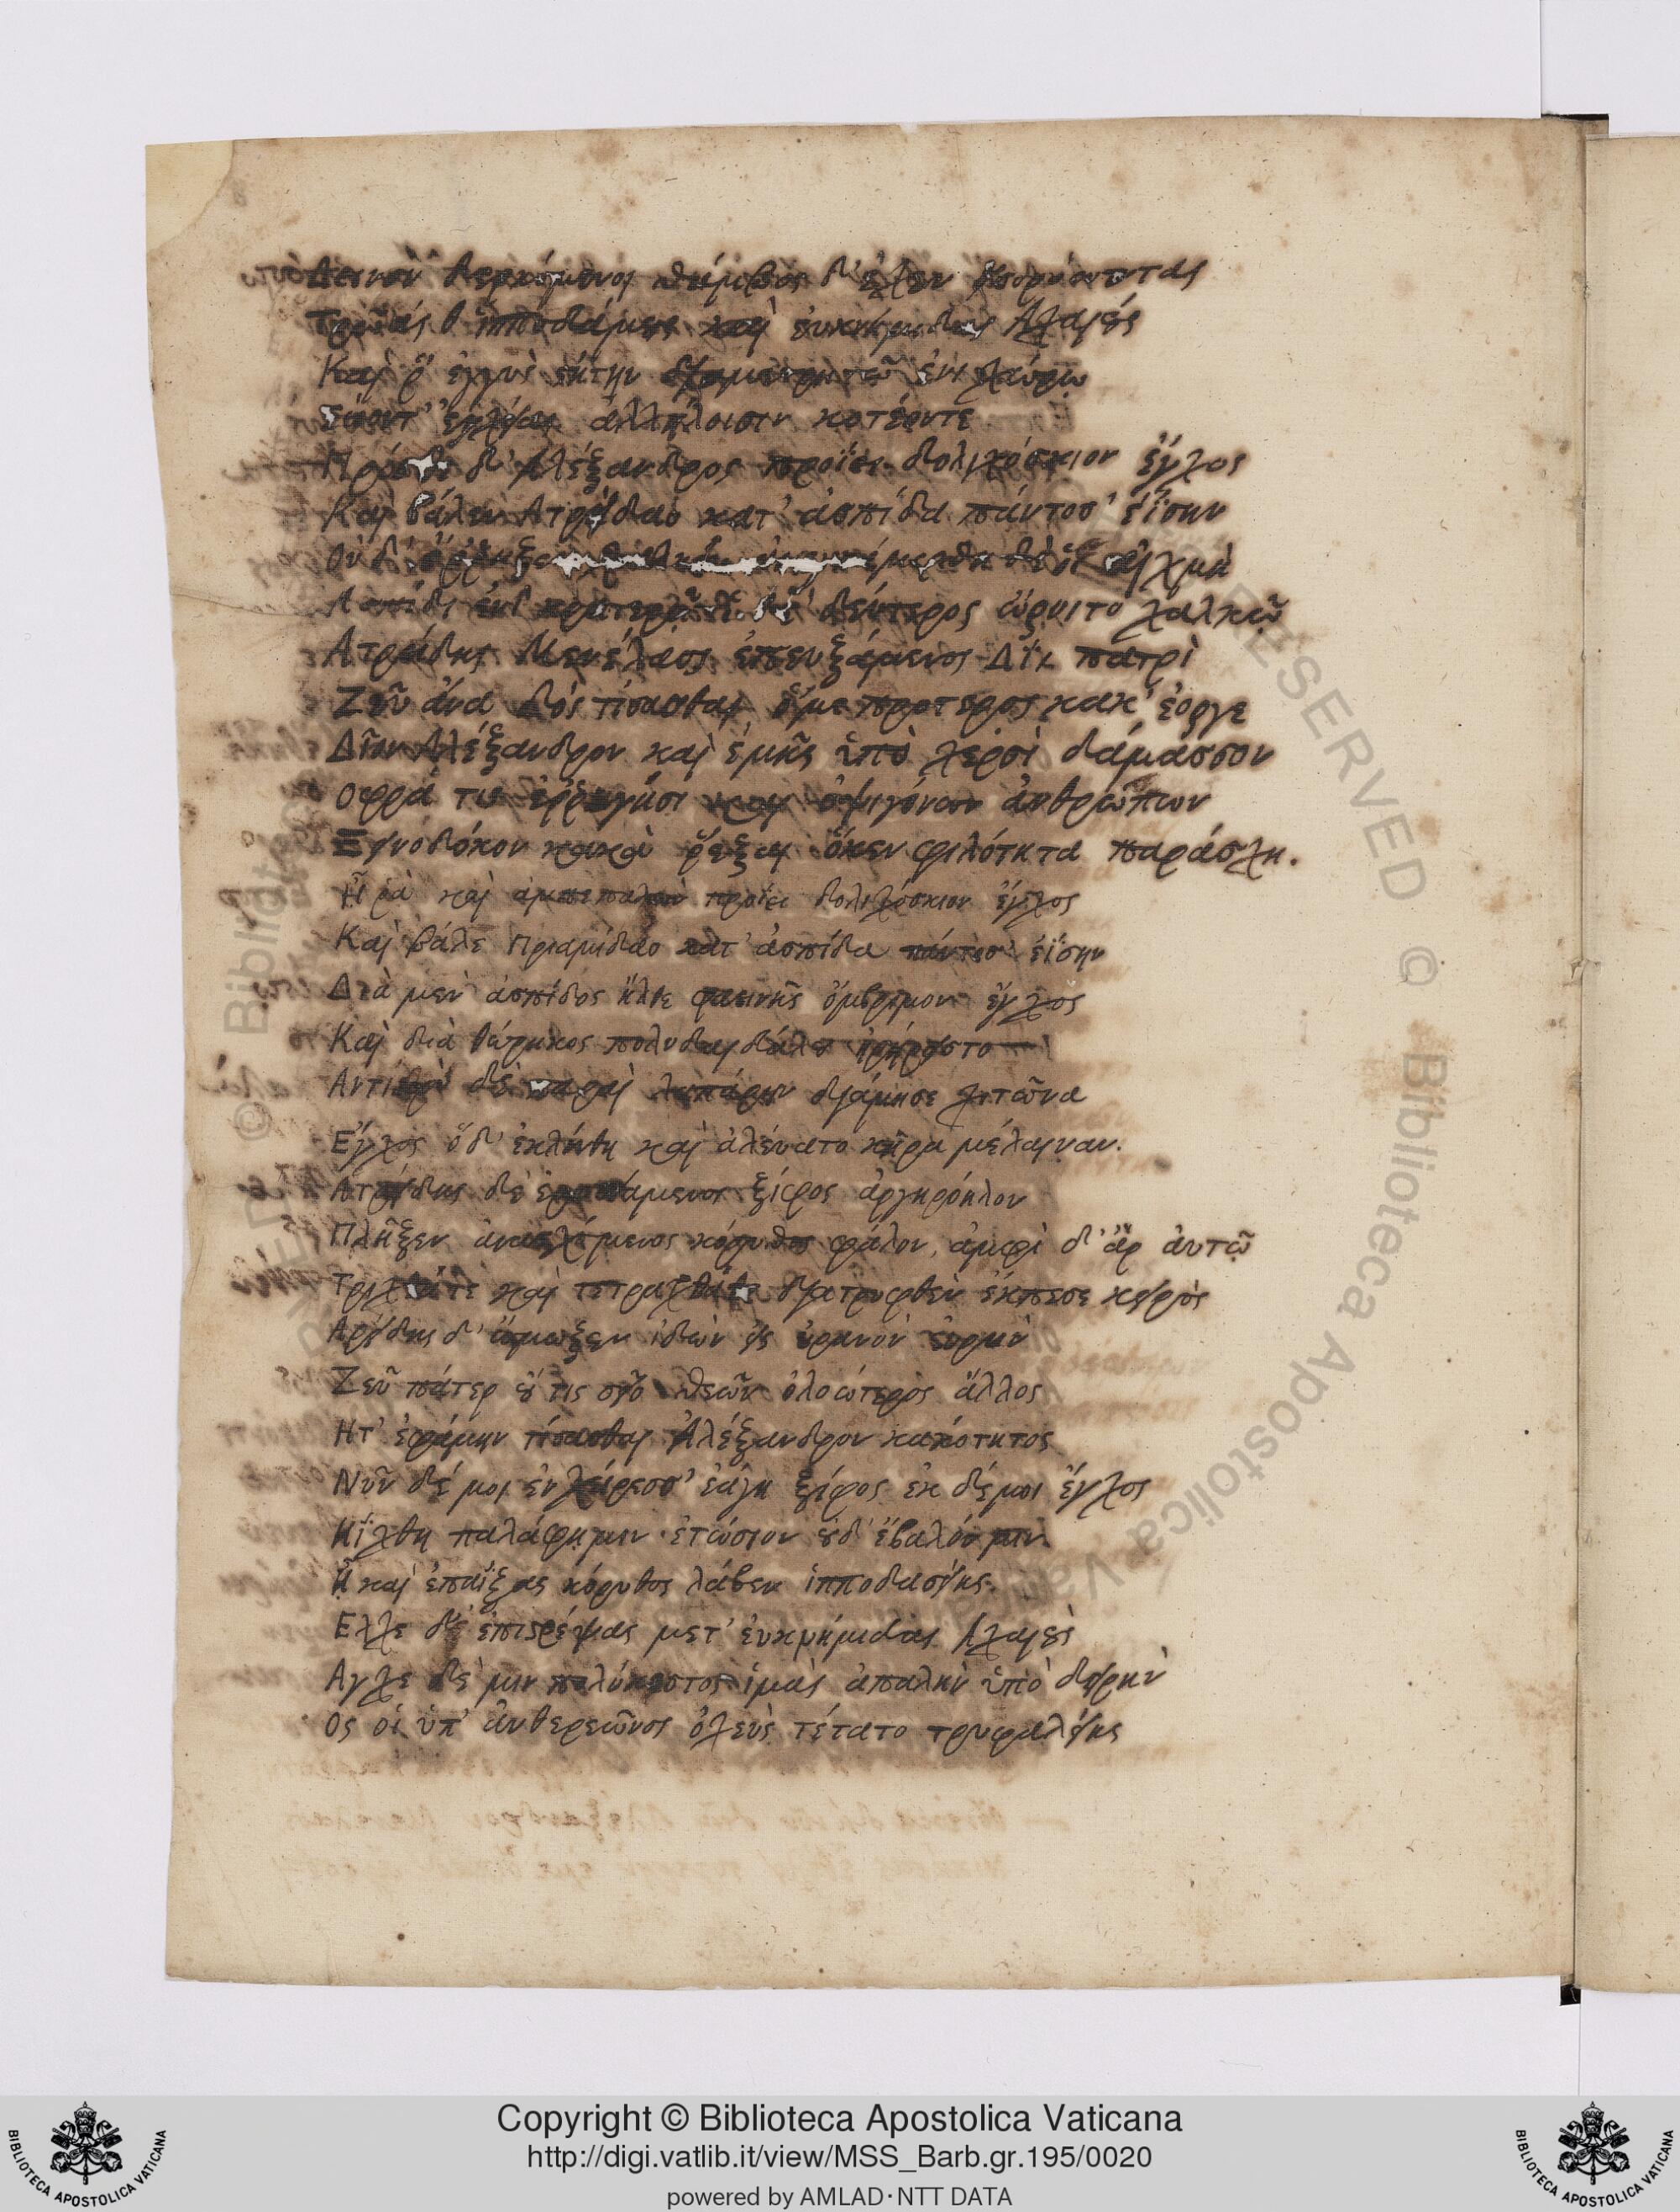 Δεινὸν δερκόμενοι θάμβος δ' ἔχεν εἰσορόωντας
Τρῶάς θ' ἱπποδάμους καὶ ἐυκνήμιδας Αχαιούς
Και ῥ' ἐγγὺς στήτην διαμετρητῶ ἐνι χώρω
Σείοντ' ἐγχείας ἀλλήλοισιν κοτέοντε
Πρόσθε δ' Αλέξανδρος προΐει δολιχόσκιον ἔγχος
Και βάλεν Ατρείδαο κατ' ἀσπίδα πάντοσ' ἐΐσην
Οὐδ' ἔρρηξεν αἰχμὴ
Ασπίδι ἐνὶ κρατερῆ δεύτερος ὤρνυτο χαλκῷ
Ατρείδης Μενέλαος ἐπευξάμενος Διῒ πατρὶ
Ζεῦ ἄνα δός τίσασθαι ὅ με πρότερος κακ' ἔοργε
Δῖον Αλέξανδρον και ἐμῆς ὑπὸ χερσὶ δάμασσον
Οφρά τις ἐρρίγησι και ὀψιγόνων ἀνθρώπων
Ξεινοδόκον κακὰ ῥέξαι ὅκεν φιλότητα παράσχη.
Ἦ ρὰ και ἀμπεπαλων προΐει δολιχόσκιον ἔγχος
Και βάλε Πριαμίδαο κατ' ἀσπίδα πάντοσ' ἐΐσην
Διὰ μεν ἀσπίδος ἦλθε φαεινῆς ὄμβριμον ἔγχος
Και διὰ θώρηκος πολυδαιδάλου ἠρήρειστο
Αντικρὺ δὲ παραὶ λαπάρην διάμησε χιτῶνα
Εγχος ὅδ' ἐκλίνθη και ἀλεύατο κῆρα μέλαιναν.
Ατρείδης δὲ ἐρυσσάμενος ξίφος ἀργυρόηλον
Πλῆξεν ἀνασχόμενος κόρυθος φάλον, ἀμφὶ δ' ἄρ αὐτῷ
Τριχθάτε και τετραχθὰ διατρυφθὲν ἔκπεσε χειρὸς
Ατρείδης δ' ᾤμωξεν ἰδὼν εἰς οὐρανὸν εὐρὺν
Ζεῦ πάτερ οὔ τις σεῖο θεῶν ὀλοώτερος ἄλλος
Ητ' ἐφάμην τίσασθαι Ἀλέξανδρον κακότητος
Νῦν δέ μοι ἐν χείρεσσ' ἐάγη ξίφος ἐκ δέ μοι ἔγχος
Ηΐχθη παλάφη μιν ἐτώσιον οὐδ' ἔβαλόν μιν
Ἦ και ἐπαΐξας κόρυθος λάβεν ἱπποδασείης.
Ελχε δ' ἐπιστρέψας μετ' ἐυκνήμιδας Αχαιοὺς
Αγχε δὲ μιν πολύκεστος ἱμὰς ἀπαλὴν ὑπὸ δειρὴν
Ος οἱ ὑπ' ἀνθερεῶνος ὀχεὺς τέτατο τρυφαλείης
Copyright © Biblioteca Apostolica Vaticana
http://digi.vatlib.it/view/MSS_Barb.gr.195/0020
powered by AMLAD·NTT DATA
BIBLIOTECA APOSTOLICA VATICANA
BIBLIOTECA APOSTOLICA VATICANA